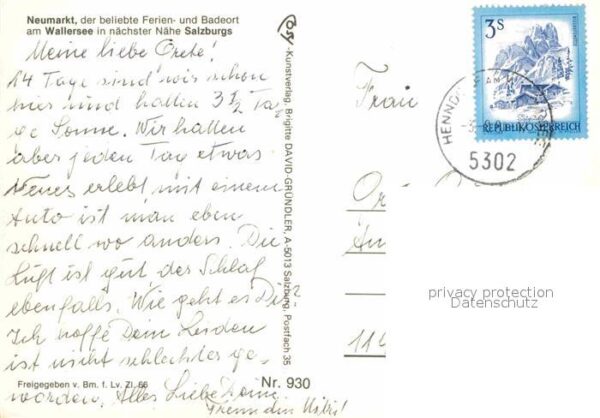 Neumarkt, der beliebte Ferien- und Badeort
am Wallersee in nächster Nähe Salzburgs
Meine liebe Grete!
14 Tage sind wir schon
hier und hatten 3 1/2 Ta
ge Sonne. Wir hatten
aber jeden Tag etwas
Neues erlebt, mit einem
Auto ist man eben
schnell wo anders. Die
Luft ist gut der Schlaf
ebenfalls. Wie geht es Dir?
Ich hoffe Dein Leiden
ist nicht schlechter ge-
worden. Alles Liebe
Freundin
Freigegeben v. Bm. f. Lv. Zl. 66
Nr. 930
Cosy-Kunstverlag, Brigitte DAVID-GRÜNDLER, A-5013 Salzburg, Postfach 35
Frau
3S
REPUBLIK ÖSTERREICH
HENND
5302
privacy protection
Datenschutz